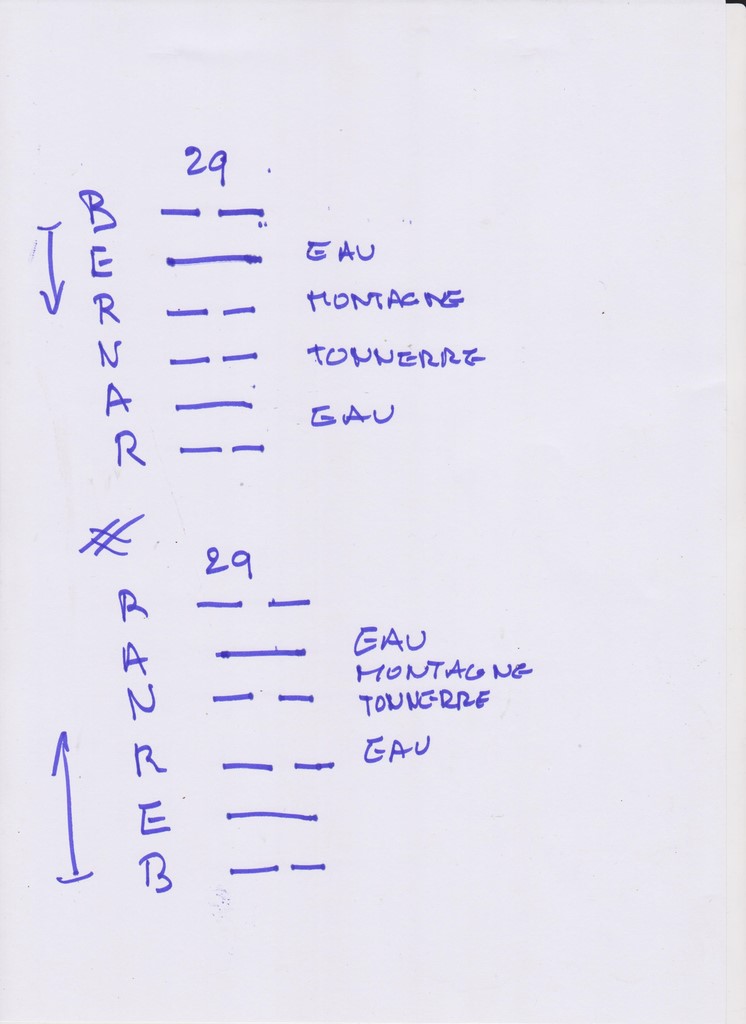 29
B
E EAU
R MONTAGNE
N TONNERRE
A EAU
R
29
R
A EAU
MONTAGNE
N TONNERRE
R EAU
E
B